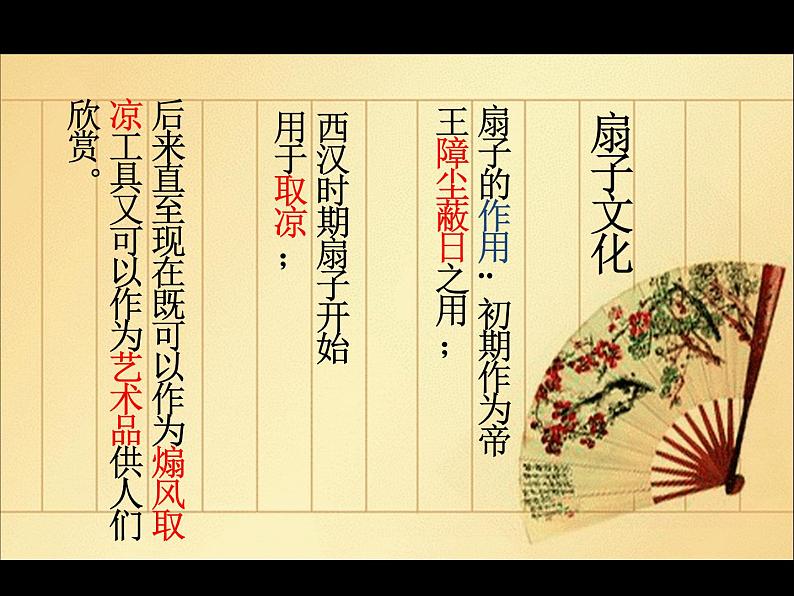 扇子文化
扇子的作用：初期作为帝
王障尘蔽日之用；
西汉时期扇子开始
用于取凉；
后来直至现在既可以作为煽风取
凉工具又可以作为艺术品供人们
欣赏。